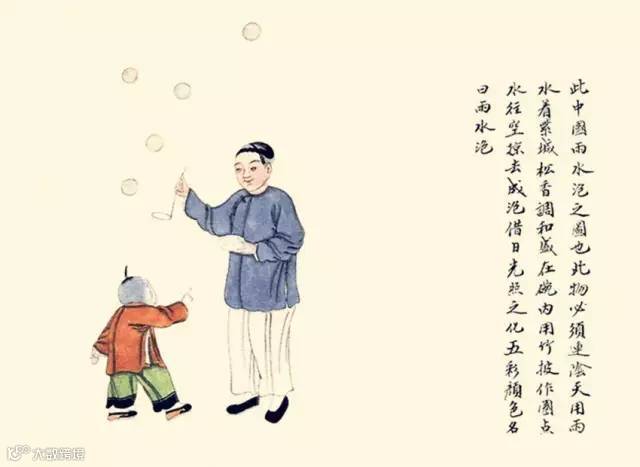 此中國雨水泡之圖也此物必須連陰天用雨
水着紫城松香調和盛在碗内用竹披作圈点
水往空掠去成泡借日光照之化五彩顏色名
曰雨水泡
大数跨境